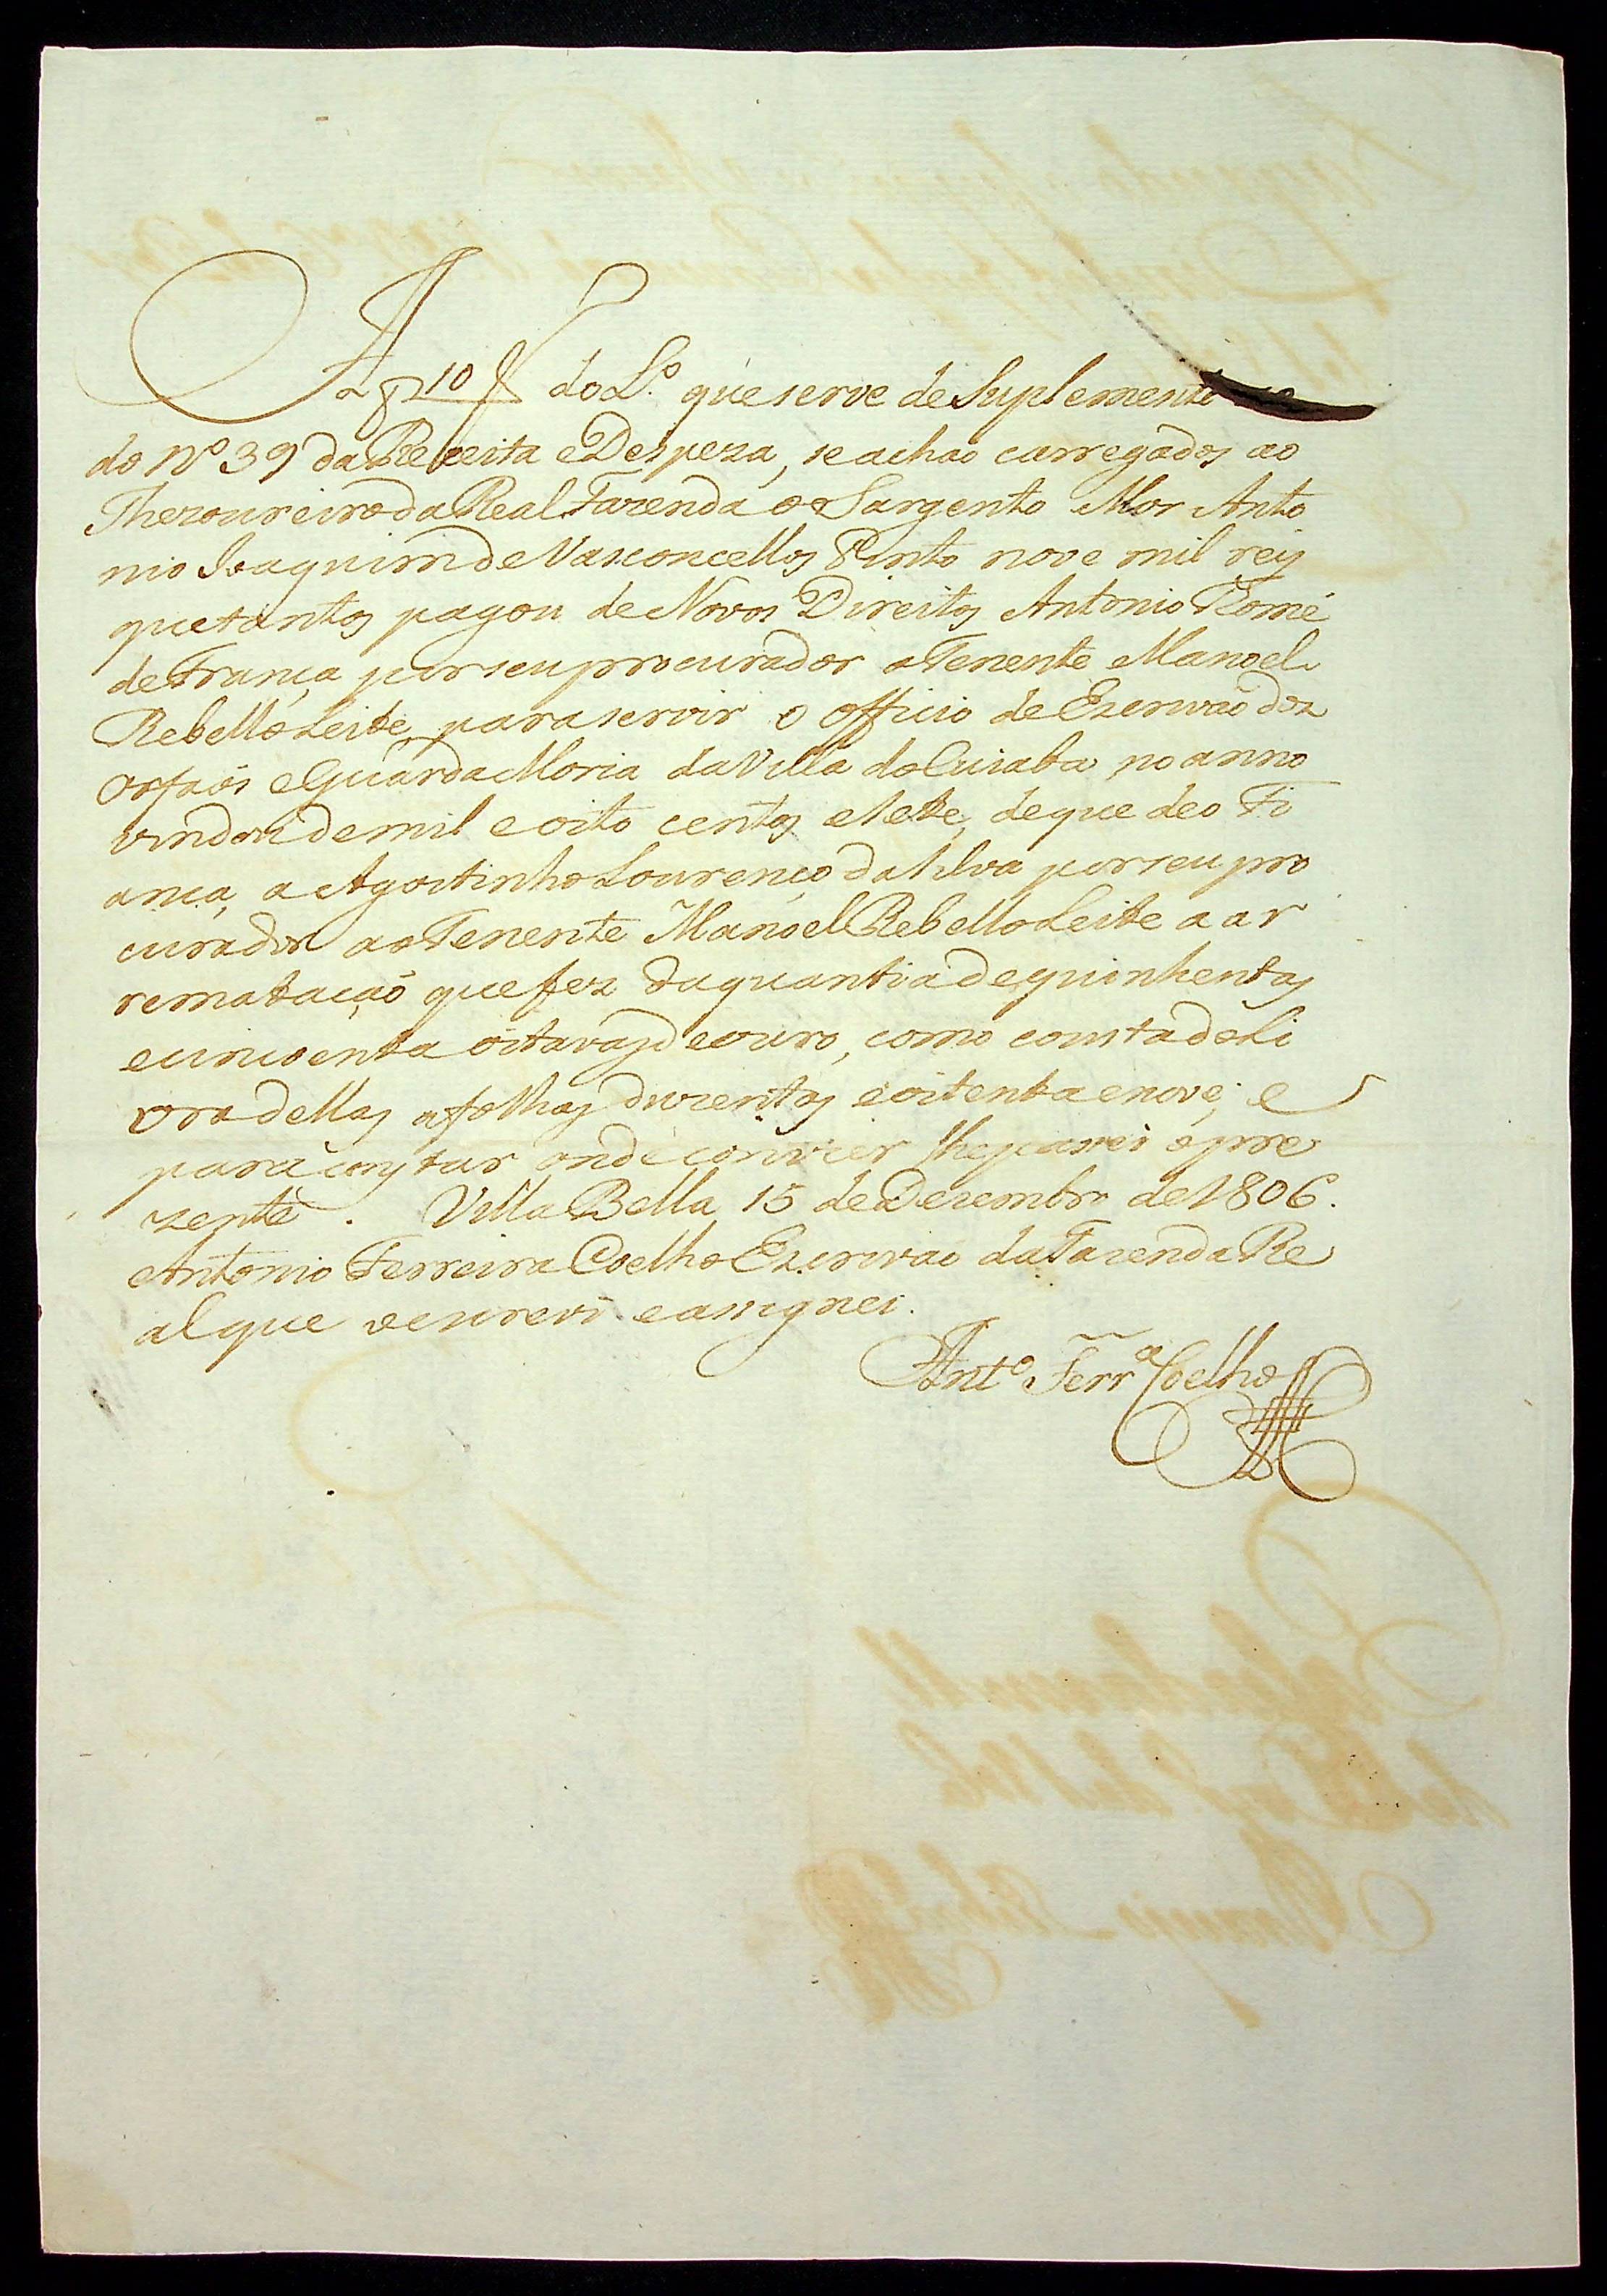 A f 10 do L.º que serve de Suplemento
do Nº 39 da Receita e Despeza, se achaõ carregados ao
Thezoureiro da Real Fazenda o Sargento Mor Anto
nio Joaquim de Vasconcellos Pinto nove mil reis
que tantos pagou de Novos Direitos Antonio Romé
de França por seu procurador o Tenente Manoel
Rebello Leite, para servir o officio de Escrivaõ dos
Orfaõs e Guarda Moria da Villa do Cuiaba, no anno
vindoiro de mil e oito centos e sete, de que deo Fi
ança, a Agostinho Lourenço da Silva por seu pro
curador ao Tenente Manoel Rebello Leite a ar
remataçaõ que fez da quantia de quinhentas
e cincoenta oitavas de ouro, como consta do Li
vro dellas a folhas duzentas e oitenta e nove; e
para constar onde convier lhe passei o pre
zente. Villa Bella 15 de Dezembro de 1806.
Antonio Ferreira Coelho Escrivaõ da Fazenda Re
al que o escrevi e assignei.
Antº. Ferrª Coelho